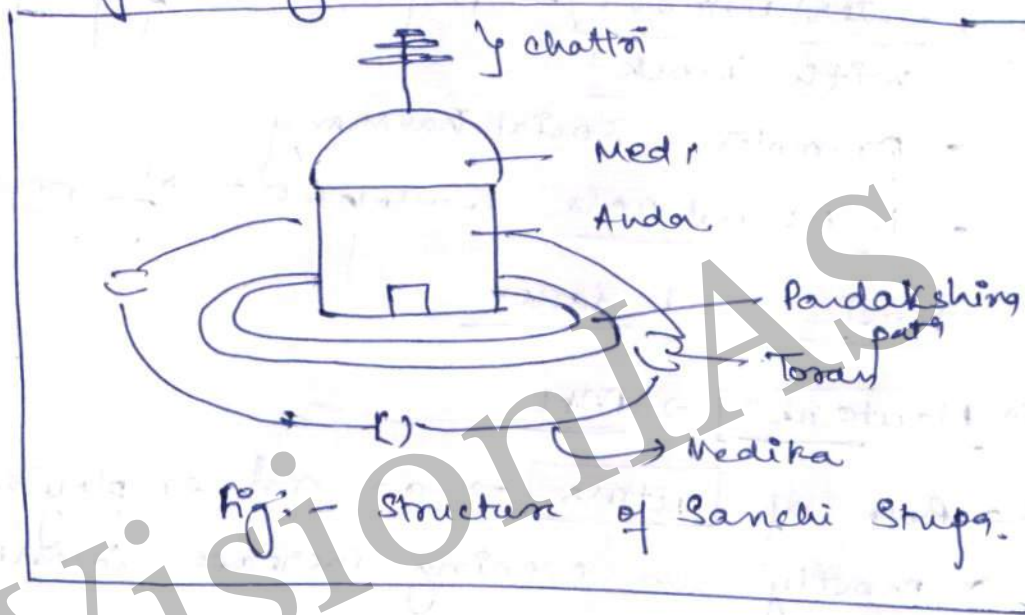 chattri
Medi
Anda
Pardakshina
path
Toran
Vedika
Fig:- Structure of Sanchi Stupa.
VisionIAS